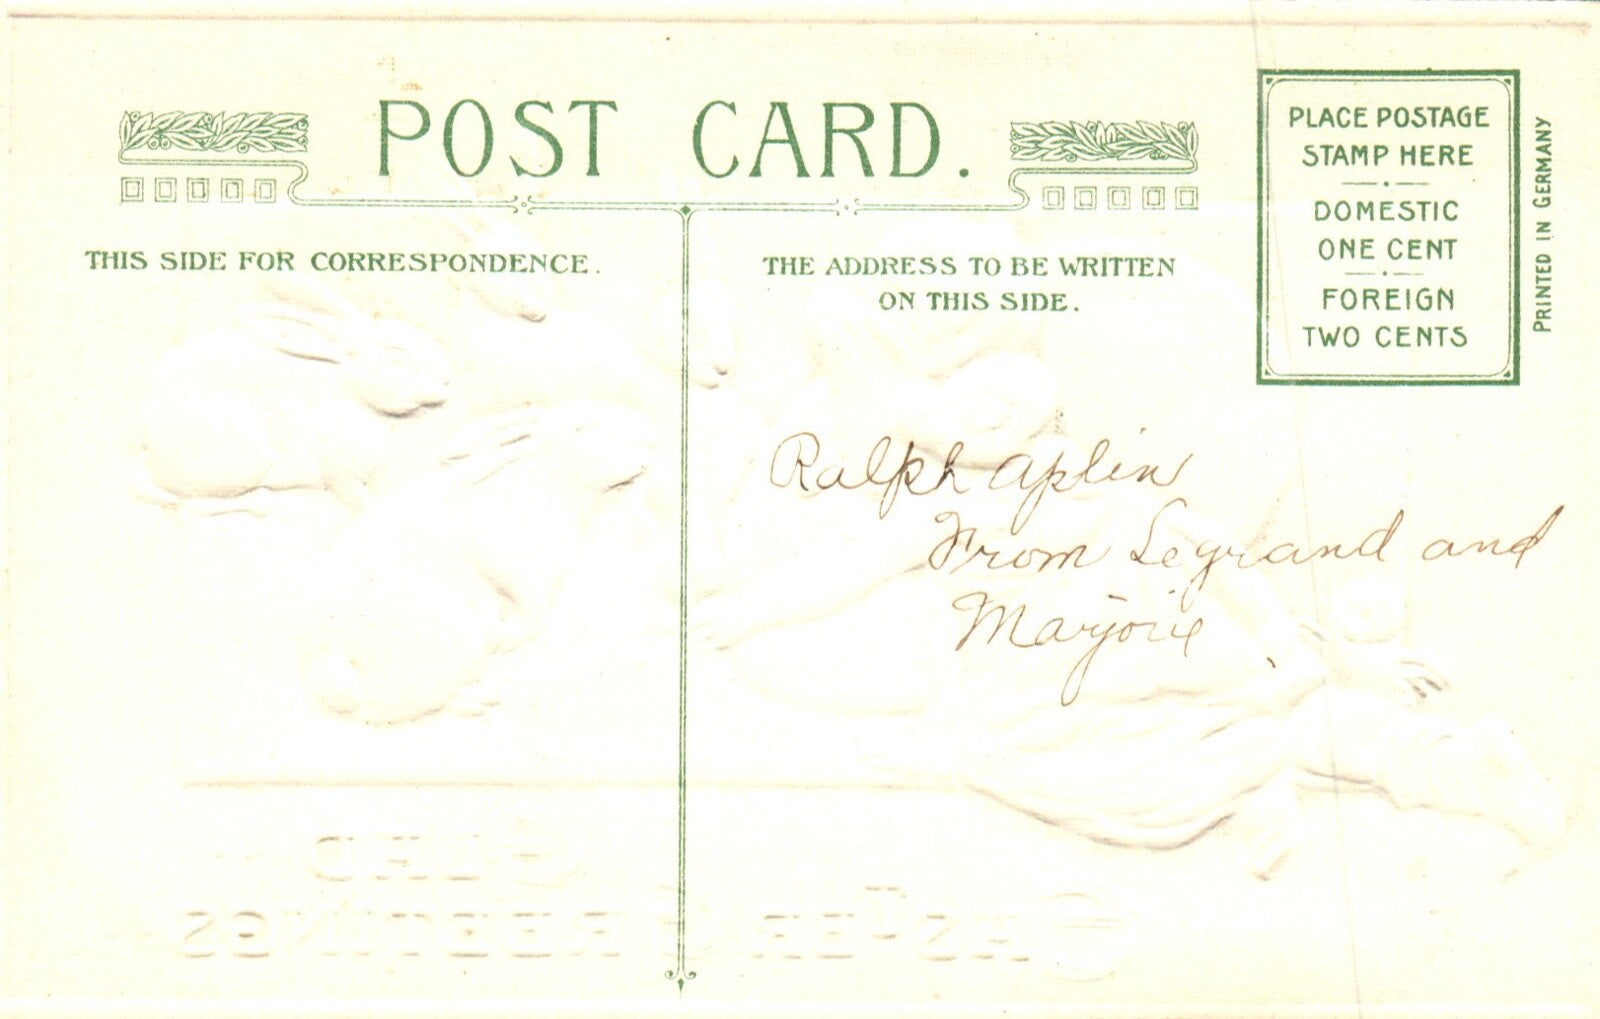 POST CARD.
THIS SIDE FOR CORRESPONDENCE.
THE ADDRESS TO BE WRITTEN
ON THIS SIDE.
PLACE POSTAGE
STAMP HERE
DOMESTIC
ONE CENT
FOREIGN
TWO CENTS
PRINTED IN GERMANY
Ralph Aplin
From Legrand and
Marjorie